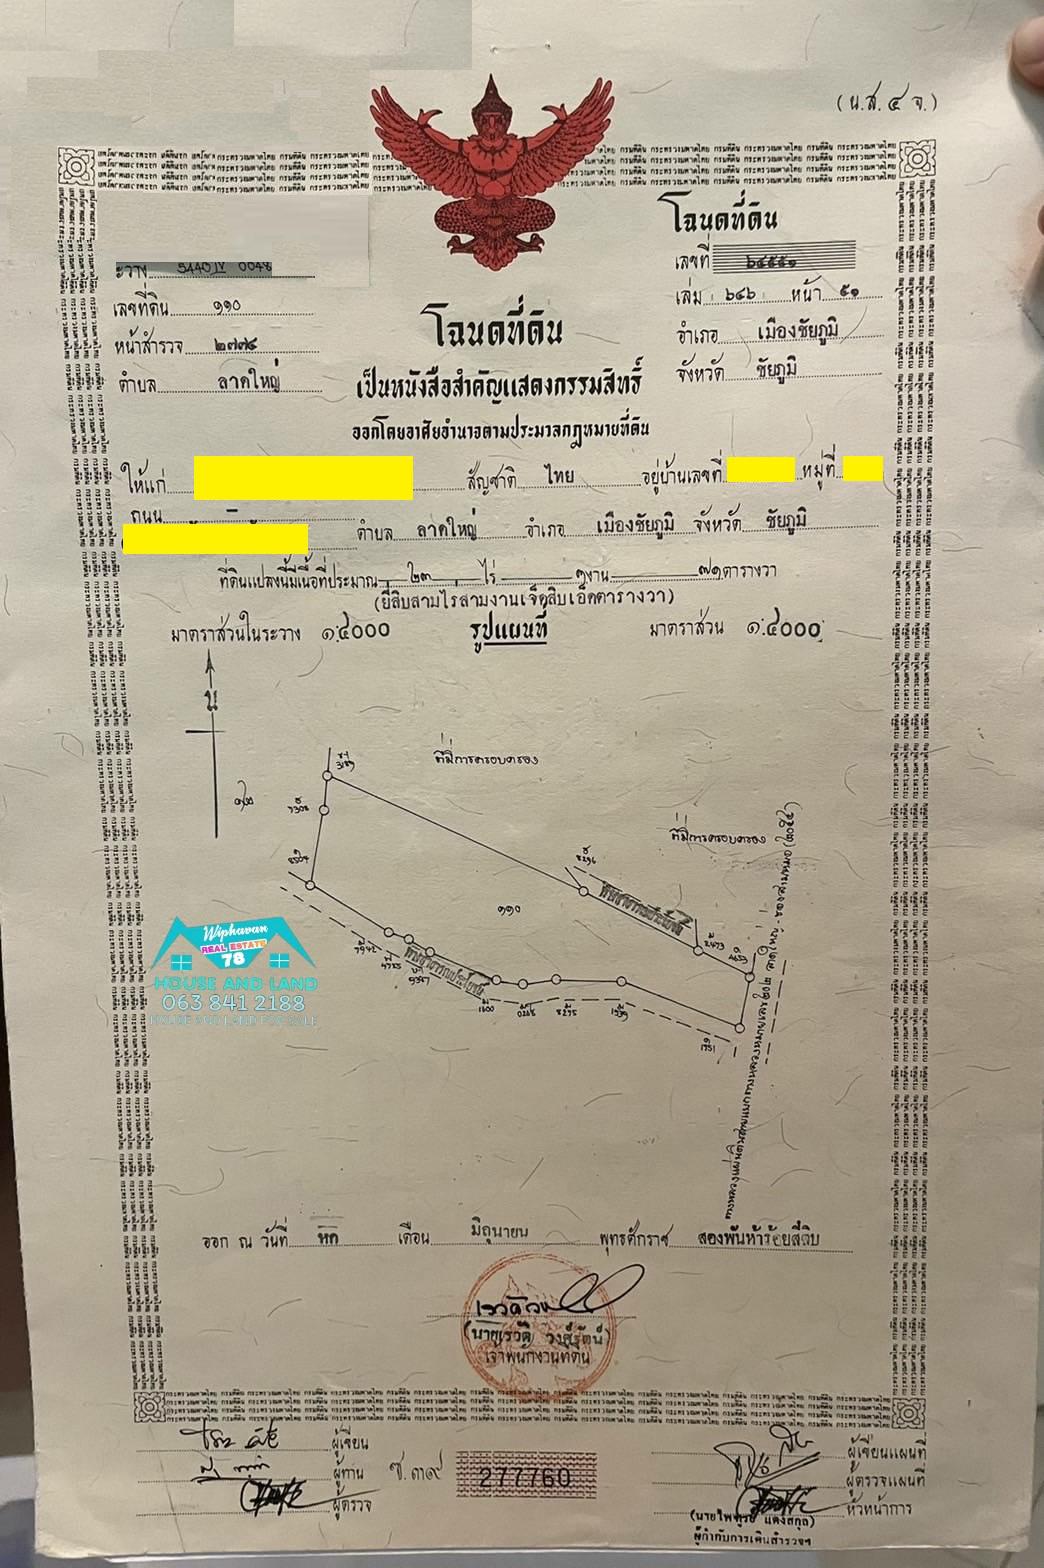 (น.ส.๔ จ.)
โฉนดที่ดิน
ระวาง 5440 IV 0048
เลขที่ ๖๔๕๕๑
เลขที่ดิน ๑๑๐
เล่ม ๖๔๖ หน้า ๕๑
หน้าสำรวจ ๒๗๗๔
โฉนดที่ดิน
อำเภอ เมืองชัยภูมิ
ตำบล ลาดใหญ่
เป็นหนังสือสำคัญแสดงกรรมสิทธิ์
จังหวัด ชัยภูมิ
ออกโดยอาศัยอำนาจตามประมวลกฎหมายที่ดิน
ให้แก่ สัญชาติ ไทย อยู่บ้านเลขที่ หมู่ที่
ถนน –
ตำบล ลาดใหญ่ อำเภอ เมืองชัยภูมิ จังหวัด ชัยภูมิ
ที่ดินแปลงนี้มีเนื้อที่ประมาณ ๒๓ ไร่ ๓ งาน ๗๑ ตารางวา
(ยี่สิบสามไร่สามงานเจ็ดสิบเอ็ดตารางวา)
มาตราส่วนในระวาง ๑:๔๐๐๐ รูปแผนที่ มาตราส่วน ๑:๔๐๐๐
น
ที่มีการครอบครอง
ที่มีการครอบครอง
๑๑๐
Wiphavan
REAL ESTATE
78
HOUSE AND LAND
063 841 2188
HOUSE AND LAND FOR SALE
ออก ณ วันที่ หก เดือน มิถุนายน พุทธศักราช สองพันห้าร้อยสี่สิบ
(นายเรวัติ วงษ์รัตน์)
เจ้าพนักงานที่ดิน
ผู้เขียน
ผู้เขียนแผนที่
ผู้ทาน
ช.๓๙
277760
ผู้ตรวจแผนที่
ผู้ตรวจ
หัวหน้าการ
(นายไพฑูรย์ แดงสกุล)
ผู้กำกับการเดินสำรวจฯ